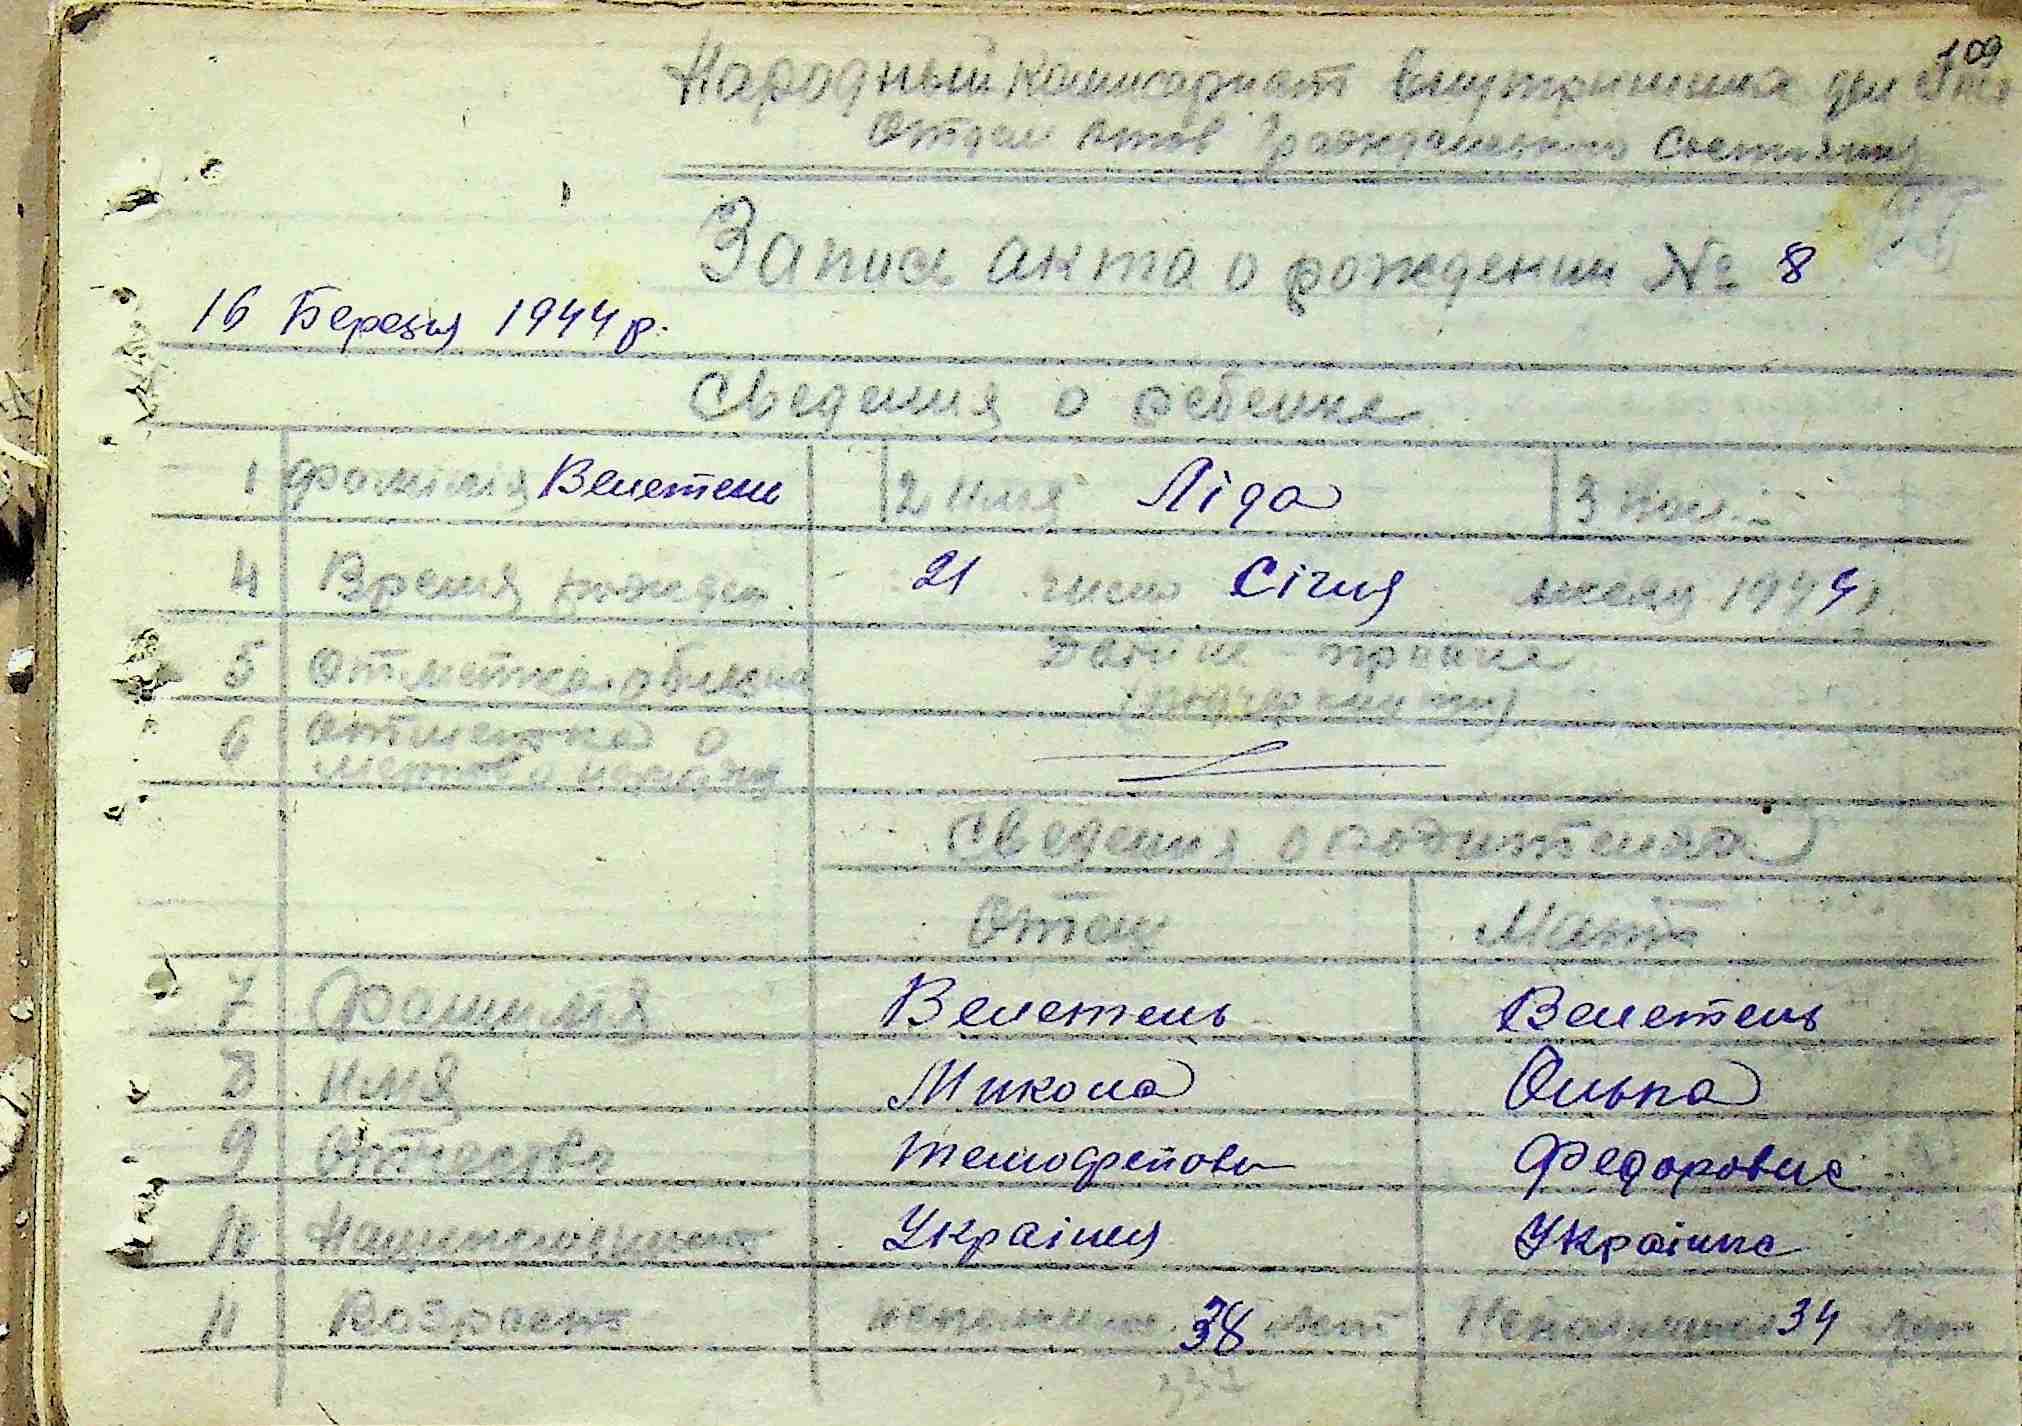 109
Народный комисариат внутренних дел
Отдел Актов Гражданского Состояния
Запись акта о рождении № 8
16 Березня 1944 р.
Сведения о ребенке
1 фамілія Велетень 2 Имя Ліда 3 Пол
4 Время рожден 21 число Січня месяца 1944 г.
5 Отметка Двойне тройне
(подчеркнуть)
6 Отметка о
мертво
Сведения о родителях
Отец Мать
7 Фамилия Велетень Велетень
8 Имя Микола Ольга
9 Отчество Тимофейови Федоровна
10 Национальност Українця Українка
11 Возраст исполнилось 38 лет Исполнилось 34 лет